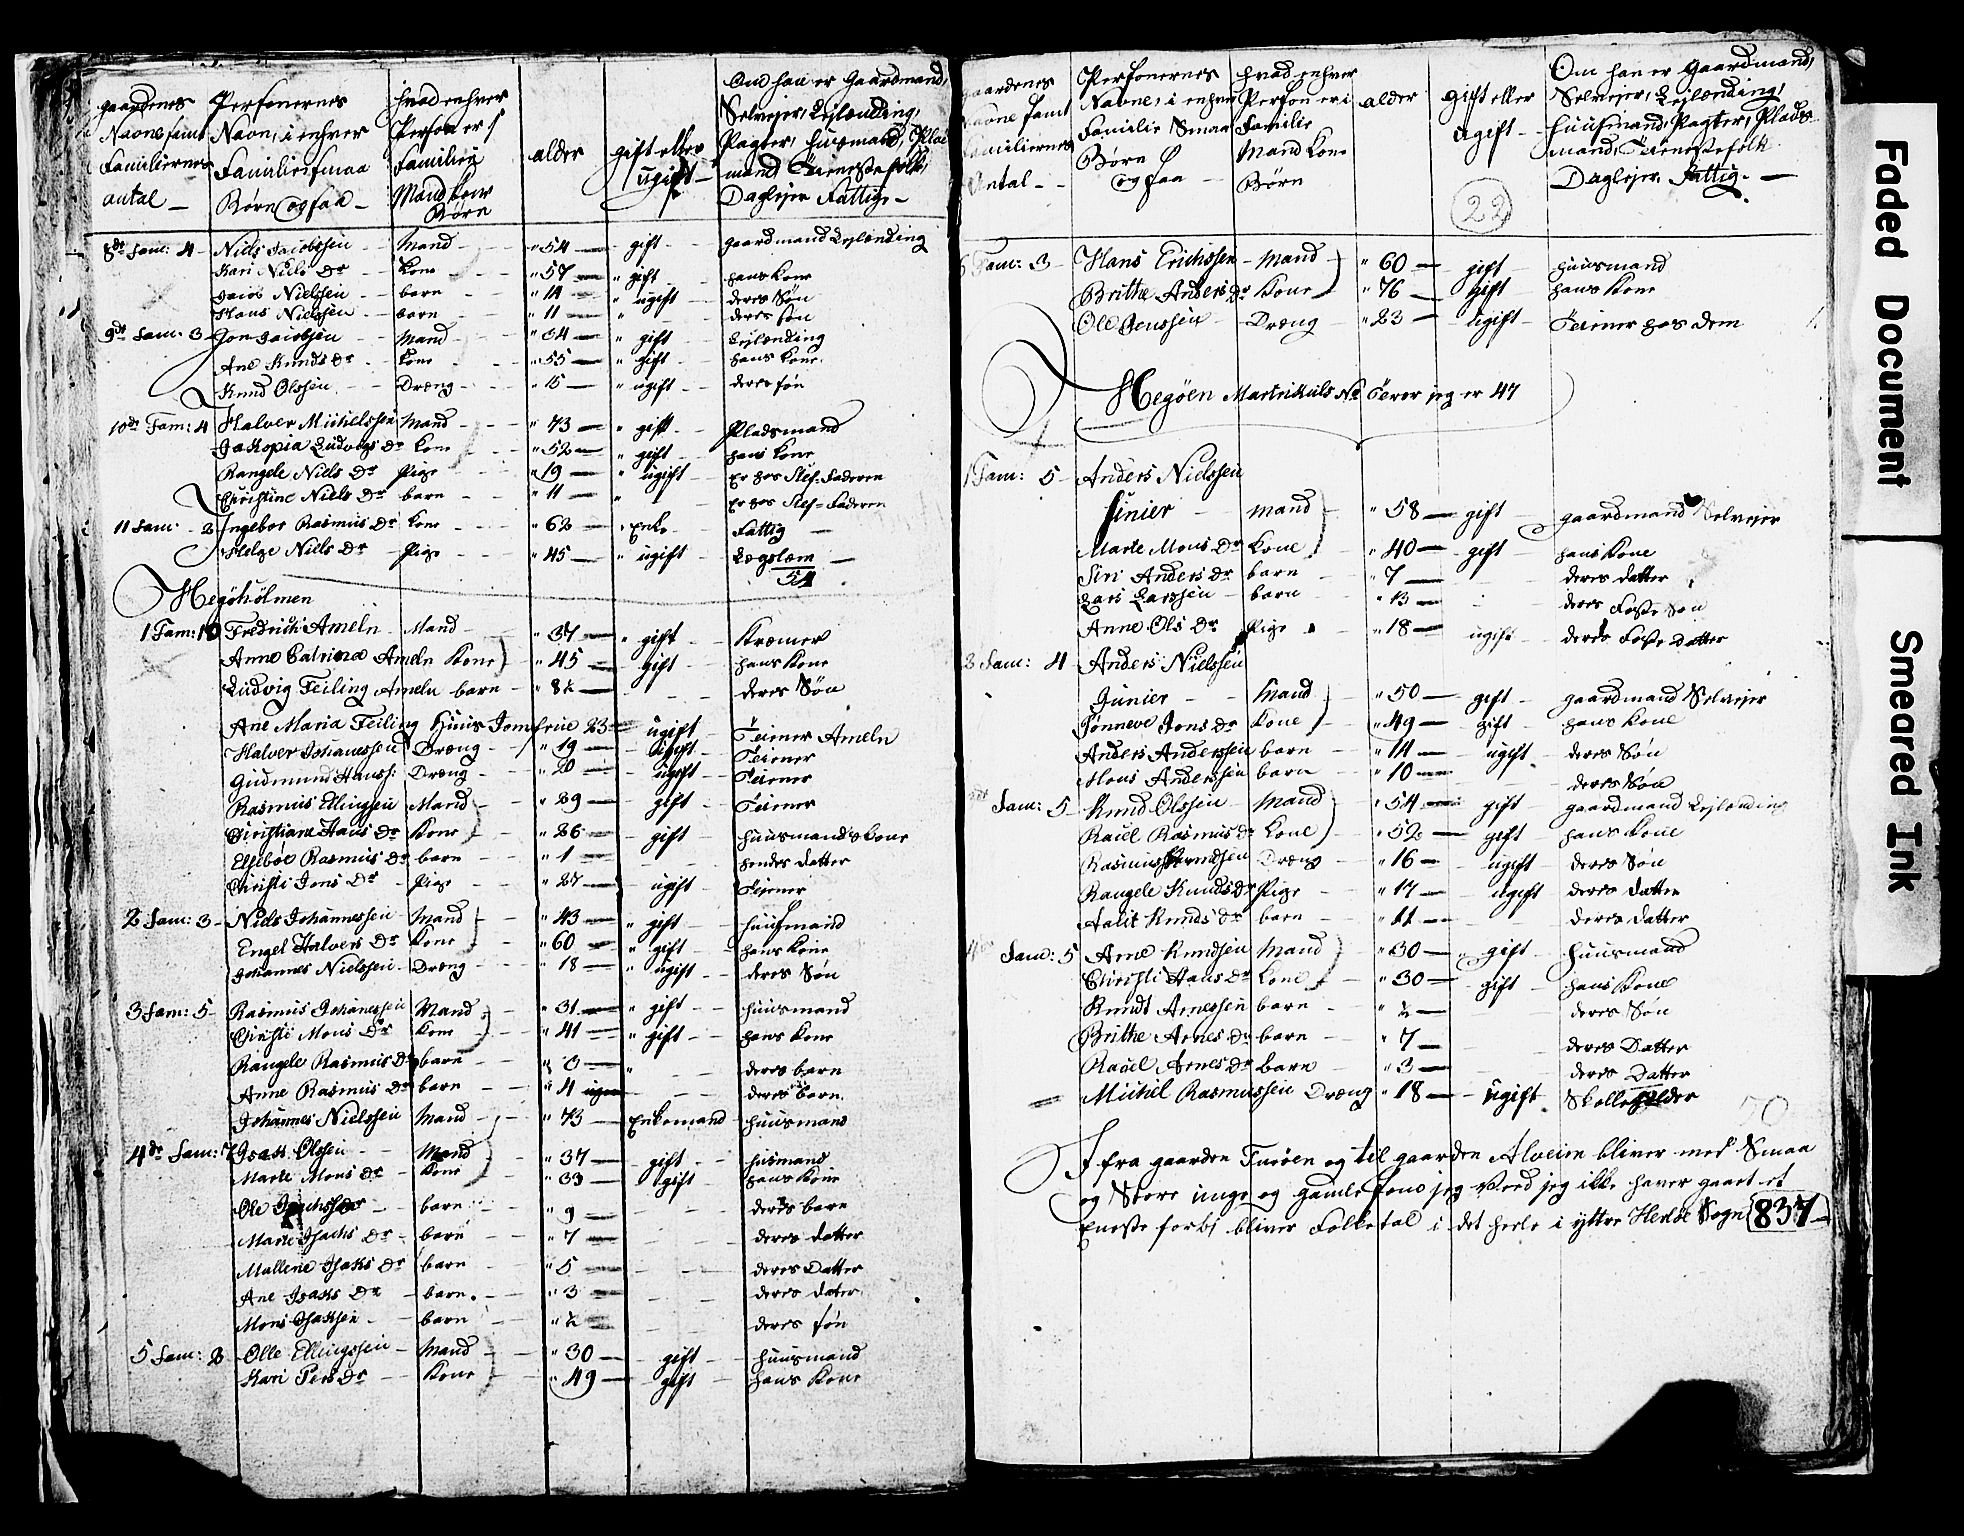 gaardenes Navne samt Familiernes antal –
Personernes Navn, i enhver Families smaa Børn og saa –
hvad enhver Person er i Familien Mand kone Børn
alder
gift eller ugift –
Om han er Gaardmand, Selvejer, Lejlænding, Pagter, huusmand, Plads mand Tienestefolk, Daglejer Fattige –
8de Fam: 4 Niels Jacobssen – Mand – " 54 – gift – gaardmand Lejlænding
Kari Niels Dr – kone – " 57 – " gift – hans kone
Jacob Nielssen – barn – " 14 – " ugift – deres Søn
Hans Nielssen – barn – " 11 – " deres søn
9de Fam: 3 Jon Jacobsen – Mand – " 34 – " gift – Lejlænding
Ane Knuds Dr – kone – " 55 – " gift – hans kone.
Knud Olssen – Dræng – " 15 – " ugift – deres søn
10de Fam: 4 Halver Michelssen Mand – " 73 – " gift – Pladsmand
Jakopia Ludvigs Dr kone – " 52 – " gift – hans kone
Rangele Niels Dr Pige – " 19 – " ugift – er hos Stef-Faderen
Christine Niels Dr – barn – " 11 – " er hos Stef-Faderen
11 Fam: – 2 Ingebor Rasmus Dr kone – " 62 – " Enke – Fattig –
Helge Niels Dr – Pige – " 45 – " ugift – Lægslæm –
54
Hegöhölmen
1 Fam: 10 Fredrich Ameln – Mand – " 37 – " gift – Kræmer
Anne Catrina Ameln Kone " 45 – gift – hans kone
Ludvig Feiling Ameln barn – " 8½ – deres Søn
Ane Maria Feiling Huus Jomfrue 23 – ugift – Teiner Ameln
Halver Johannessen Dræng – " 19 – ugift – Teiener
Gudmund Hanss: Dræng – " 20 – ugift – Teiener
Rasmus Ellingsen Mand – " 29 – gift – Teiener
Christiane Hans Dr Kone – " 26 – gift – huusmands kone
Ellsebøe Rasmus Dr barn – " 1 – hendes datter
Christi Jons Dr – Pige – " 27 – ugift – Teiener
2 Fam: 3 – Niels Johannessen – Mand – " 43 – " gift – huusmand
Engel Halvers Dr Kone – " 60 – " gift – hans kone
Johannes Nielssen – Dræng – " 18 – " ugift – deres Søn
3 Fam: 5 – Rasmus Johanessen Mand – " 31 – " gift – huusmand
Christi Mons Dr kone – " 41 – " gift – hans kone
Rangele Rasmus Dr barn – " 3 – deres barn
Anne Rasmus Dr barn – " 4 uger – deres barn.
Johannes Nielssen Mand – " 73 – Enkemand – huusmand
4de Fam: 7 Isach Olssen – Mand – " 37 – gift – husmand
Marte Mons Dr – kone – " 33 – gift – hans kone
Ole – barn – " 9 – deres barn
Marte Isachs Dr – barn – " 7 – deres datter
Mallene Isaks Dr barn – " 5 – deres Datter
Ane Isaks Dr – barn. – " 3 – deres dater
Mons Isaksen – barn – " ½ – deres søn
5 Fam: 2 Olle Ellingssen – Mand – " 30 – gift – huusmand
Kari Pers Dr – Kone – " 49 – gift – hans kone
gaardenes Navne samt Familiernes Antal –
Personernes Navne, i enhver Familie Smaa Børn og saa –
hvad enhver Person er i Familie Mand kone Børn
alder
gift eller ugift –
Om han er Gaardmand, Selvejer, Lejlænding, huusmand, Pagter, Plads mand, Teienestefolk Daglejer, Fattig. –
22
Fam: 3 – Hans Erichssen – Mand – " 60 – gift – huusmand
Brithe Anders Dr Kone – " 76 – gift – hans kone
Ole Jenssen – Dræng – " 23 – ugift – Teiener hos dem
Hegöen Martrikuls No Terer jeg er 47
1 Fam: 5 – Anders Nielssen
Sinier – mand – " 58 – gift – gaardmand Selvejer
Marte Mons Dr kone – " 40 – gift – hans kone
Siri Anders Dr barn – " 7 – deres datter
Lars Larssen – barn – " 13 – deres Foste Søn
Anne Ols Dr Pige – " 18 – ugift – deres Foste datter
Fam: 4 Anders Nielssen
Junier – Mand – " 50 – gift – gaardmand Selvejer
Sønneve Jons Dr kone – " 49 – gift – hans kone
Anders Anderssen barn – " 14 – ugift – deres Søn
Mons Anderssen barn – " 10 – deres Søn
Fam: 5 – Knud Olssen – Mand – " 54 – gift – gaardmand Lejlænding
Rauel Rasmus Dr kone – " 52 – gift – hans kone
Rasmus Knudssen Dræng – " 16 – ugift – deres Søn
Rangele Knuds Dr Pige – " 17 – ugift – deres datter
Aalit Knuds Dr barn – " 11 – deres datter
Fam: 5 Arne Knudsen Mand – " 30 – gift – huusmand
Christi Hans Dr kone – " 30 – gift – hans kone
Knudt Arnessen barn – " ½ – deres Søn
Brithe Arnes Dr barn – " 7 – deres Datter
Rauel Arnes Dr barn – " 3 – deres Datter
Michel Rasmussen Dræng – " 18 – ugift – Skolleholder
I fra gaarden Turöen og til gaarden Alveim bliver med Smaa
og Store unge og gamle som jeg Veed jeg ikke haver gaaet et
Eneste forbi bliver Folketal i det heele i yttre Herløe Sogn 837 –
Faded Document
Smeared Ink